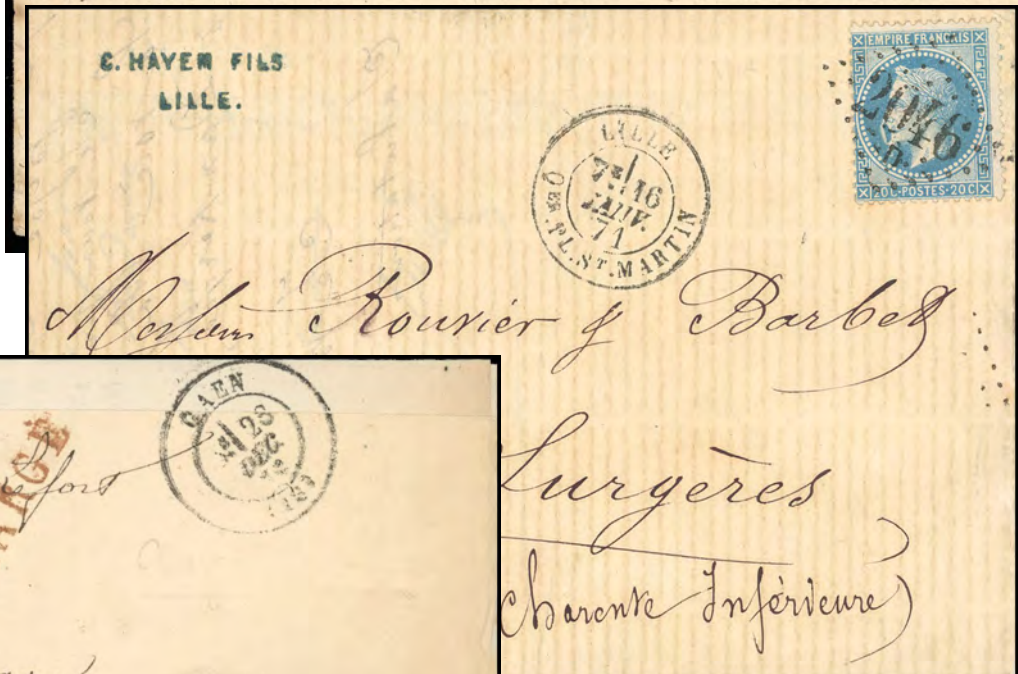 C. HAYEM FILS
LILLE.
EMPIRE FRANÇAIS
2046
20C·POSTES·20C
LILLE
7E/ 16
JANV.
71
QER. PL. ST. MARTIN
Messieurs Rouvier & Barbet
Surgères
(Charente Inférieure)
CAEN
28
DEC.